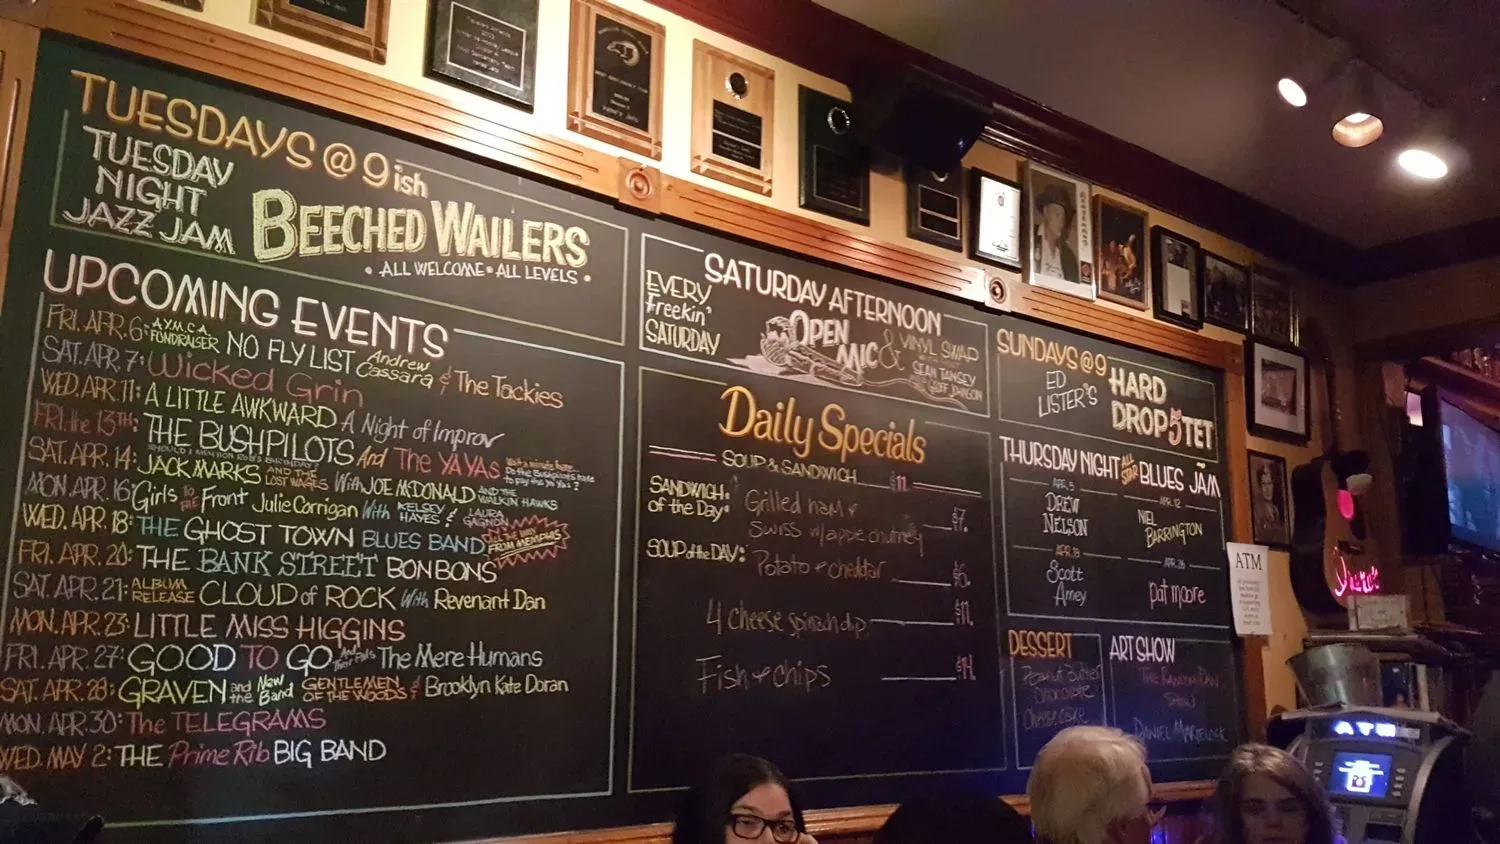 TUESDAYS @ 9ish
TUESDAY
NIGHT
JAZZ JAM
BEECHED WAILERS
• ALL WELCOME • ALL LEVELS •
UPCOMING EVENTS
FRI. APR. 6: A.Y.M.C.A. FUNDRAISER NO FLY LIST Andrew Cassara & The Tackies
SAT. APR. 7: Wicked Grin
WED. APR. 11: A LITTLE AWKWARD A Night of Improv
FRI. the 13TH: THE BUSHPILOTS And The YA YAs
SAT. APR. 14: JACK MARKS AND THE LOST WAGES With JOE McDONALD AND THE WALKIN HAWKS
MON. APR. 16: Girls to the Front Julie Corrigan With KELSEY HAYES & LAURA GAGNON
WED. APR. 18: THE GHOST TOWN BLUES BAND ALL THE WAY FROM MEMPHIS
FRI. APR. 20: THE BANK STREET BONBONS
SAT. APR. 21: ALBUM RELEASE CLOUD of ROCK With Revenant Dan
MON. APR. 23: LITTLE MISS HIGGINS
FRI. APR. 27: GOOD TO GO And Their Pals The Mere Humans
SAT. APR. 28: GRAVEN and the New Band GENTLEMEN OF THE WOODS & Brooklyn Kate Doran
MON. APR. 30: The TELEGRAMS
WED. MAY 2: THE Prime Rib BIG BAND
SATURDAY AFTERNOON
EVERY
Freekin'
SATURDAY
OPEN
MIC &
VINYL SWAP
WITH
SEAN TANSEY
AND GEOFF JOHNSON
Daily Specials
SOUP & SANDWICH $11
SANDWICH of the Day: Grilled ham &
Swiss w/apple chutney $7.
SOUP of the DAY: Potato & cheddar $6.
4 cheese spinach dip $11.
Fish & chips $14.
SUNDAYS @ 9
ED
LISTER'S
HARD
DROP 5TET
THURSDAY NIGHT ALL STAR BLUES JAM
APR. 5
DREW
NELSON
APR. 12
NEIL
BARRINGTON
APR. 19
Scott
Amey
APR. 26
pat moore
DESSERT
Peanut Butter
Chocolate
Cheesecake
ART SHOW
DANIEL MARTELOCK
ATM
ATM